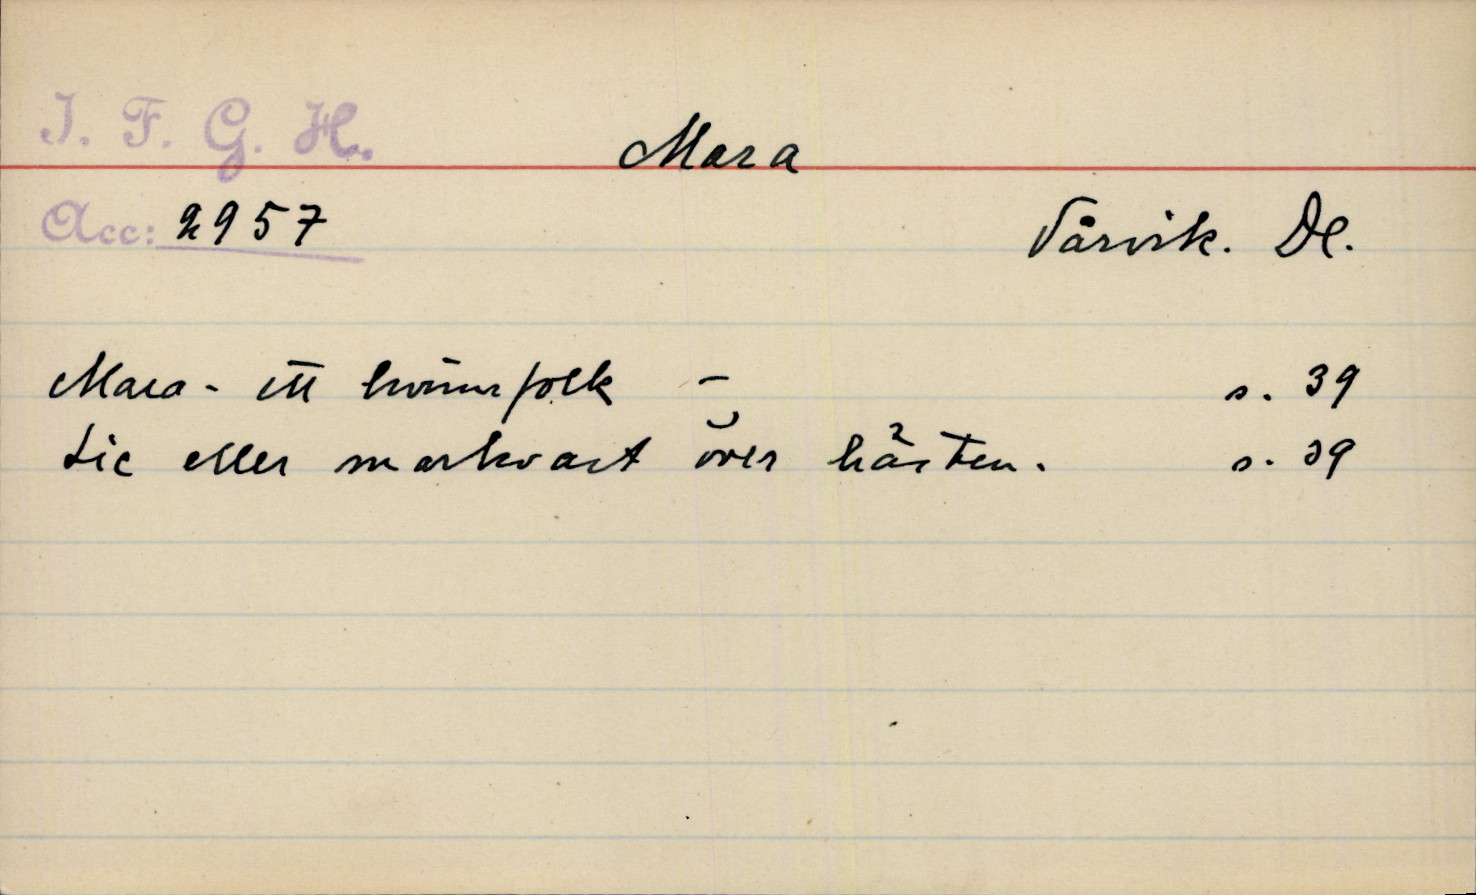 I. F. G. H.
Mara
Acc: 2957
Vårvik. Dl.
Mara - ett kvinnfolk - s. 39
Lie eller markvast över hästen. s. 39